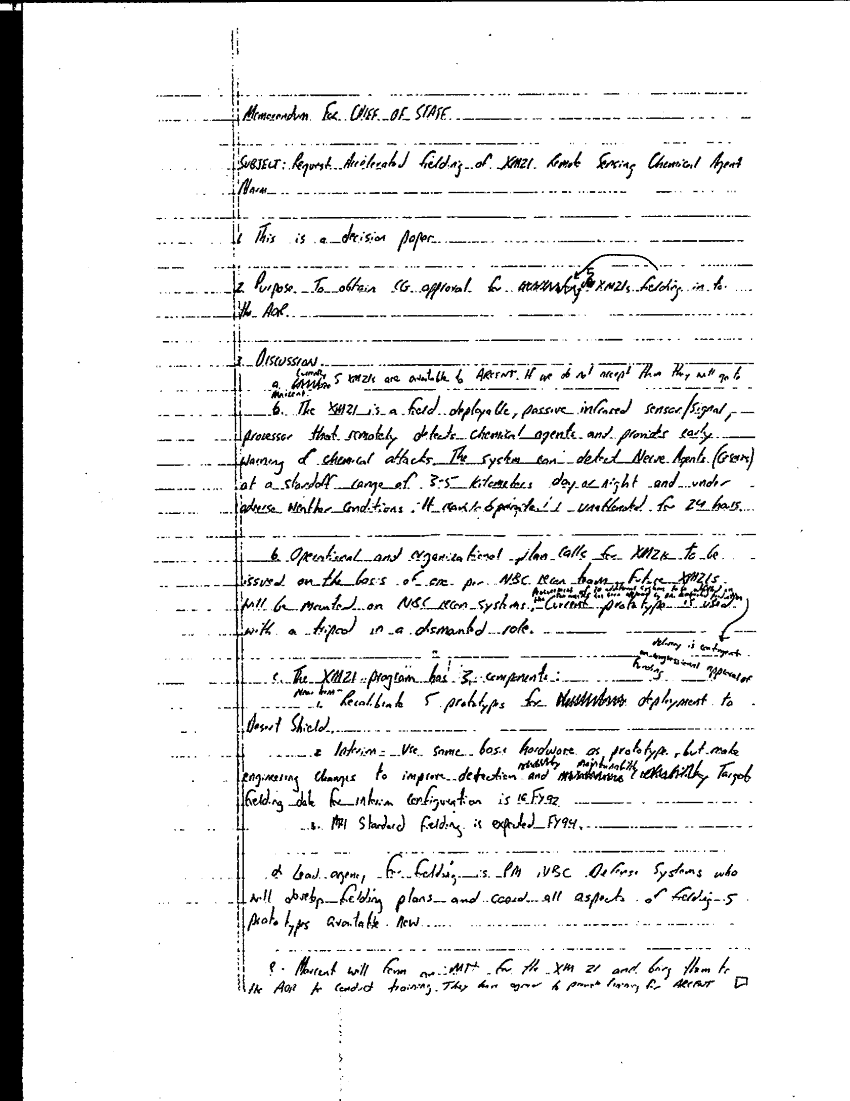 Memorandum For CHIEF OF STAFF
SUBJECT: Request Accelerated Fielding of XM21 Remote Sensing Chemical Agent
Alarm
1. This is a decision paper
2. Purpose. To obtain CG approval for XM21s fielding in to
the AOR.
3. DISCUSSION
a. Currently 5 XM21s are available to ARCENT. If we do not accept them they will go to
Marcent.
b. The XM21 is a field deployable, passive infrared sensor/signal,
processor that remotely detects chemical agents and provides early
warning of chemical attacks. The system can detect Nerve Agents
at a standoff range of 3-5 kilometers day or night and under
adverse weather conditions. It unattended for 24 hours
b. Operational and organizational plan calls for XM21s to be
issued on the basis of one per NBC recon team. Future XM21s
will be mounted on NBC recon systems. Current prototype is used
with a tripod in a dismounted role.
delivery is contingent
on congressional approval of
funding
c. The XM21 program has 3 components:
1. Recalibrate 5 prototypes for deployment to
Desert Shield.
2 Interim - Use same basic hardware as prototype, but make
engineering changes to improve detection and maintainability reliability Target
fielding date for interim configuration is FY92
3. Standard fielding is expected FY94.
d Lead agency for fielding is PM NBC Defense Systems who
will develop fielding plans and coord all aspects of fielding 5
prototypes available now
e. Marcent will form an MTT for the XM 21 and bring them to
the AOR to conduct training. They have agreed to provide training for ARCENT